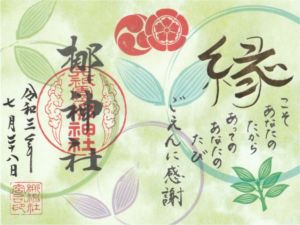 縁
こそ
あなたの
たから
あっての
あなたの
たび
ごえんに感謝
梛神社
令和三年
七月二十八日